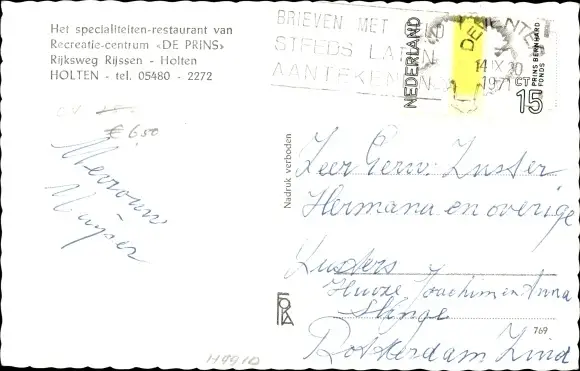 Het specialiteiten-restaurant van
Recreatie-centrum «DE PRINS»
Rijksweg Rijssen - Holten
HOLTEN - tel. 05480 - 2272
BRIEVEN MET
STEEDS LATEN
AANTEKENEN
NEDERLAND
14 IX 20
1971
PRINS BERNHARD
FONDS
CT
15
€ 6,50
Mevrouw
Nadruk verboden
Zeer Eerw. Zuster
Hermana en overige
Zusters
Huize Joachim en Anna
Slinge
Rotterdam Zuid
FOKA
769
H9910